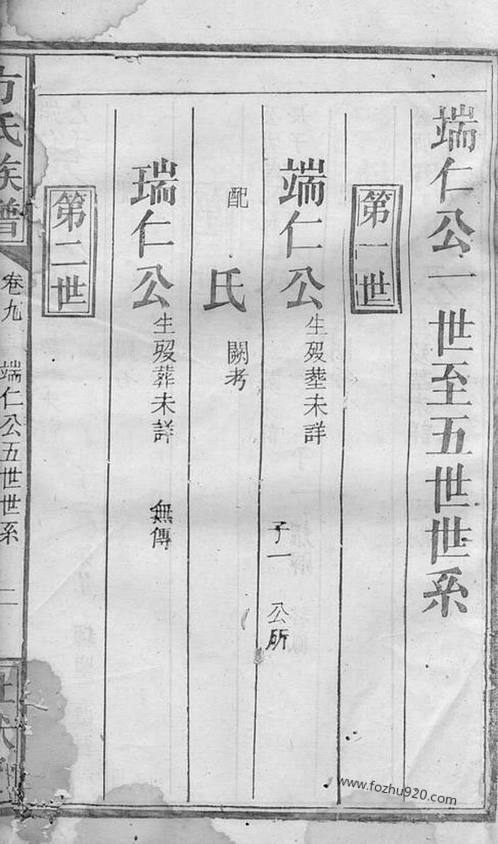 端仁公一世至五世世系
第一世
端仁公 生歿塟未詳 子一 公所
配 氏 闕考
瑞仁公 生歿葬未詳 無傳
第二世
方氏族譜 卷九 端仁公五世世系 二
www.fozhu920.com